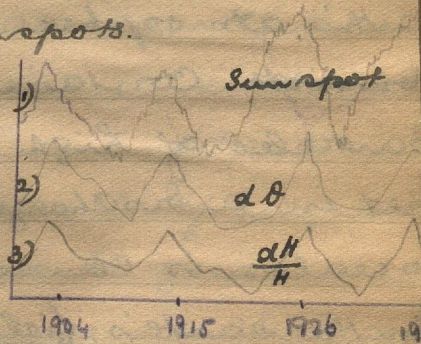 spots.
Sunspot
1)
2)
dθ
3)
dH/H
1904 1915 1926 19